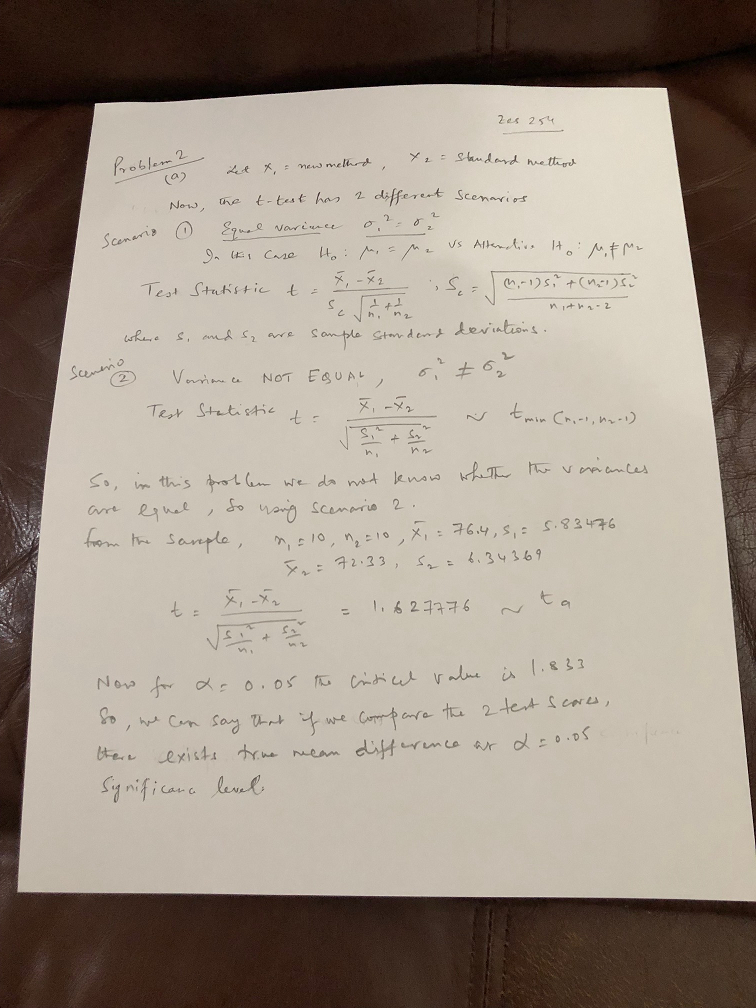 Zes 254
Problem 2
(a) Let X₁ = new method, X₂ = standard method
Now, the t-test has 2 different scenarios
Scenario ① Equal variance σ₁² = σ₂²
In this case H₀: μ₁ = μ₂ vs Alternative H₀: μ₁ ≠ μ₂
Test Statistic t = (X̄₁ - X̄₂) / (S_c √(1/n₁ + 1/n₂)) ; S_c = √(((n₁-1)S₁² + (n₂-1)S₂²) / (n₁+n₂-2))
where s₁ and s₂ are sample standard deviations.
Scenario ② Variance NOT EQUAL, σ₁² ≠ σ₂²
Test Statistic t = (X̄₁ - X̄₂) / √(S₁²/n₁ + S₂²/n₂) ~ t min (n₁-1, n₂-1)
So, in this problem we do not know whether the variances
are equal, so using scenario 2.
from the sample, n₁ = 10, n₂ = 10, X̄₁ = 76.4, S₁ = 5.83476
X̄₂ = 72.33, S₂ = 6.34369
t = (X̄₁ - X̄₂) / √(S₁²/n₁ + S₂²/n₂) = 1.627776 ~ t₉
Now for α = 0.05 the critical value is 1.833
So, we can say that if we compare the 2 test scores,
there exists true mean difference at α = 0.05
Significanc level.